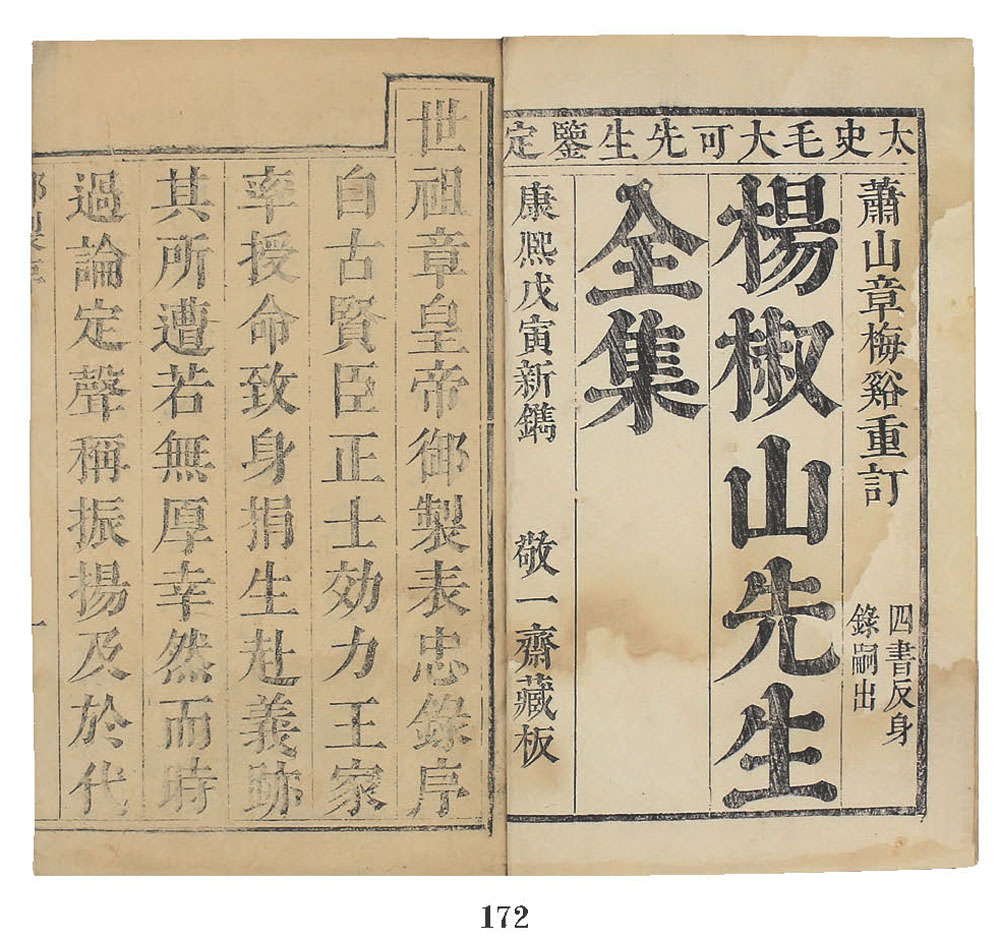 太史毛大可先生鑒定
蕭山章梅谿重訂
四書反身
錄嗣出
楊椒山先生
全集
康熙戊寅新鐫　敬一齋藏板
世祖章皇帝御製表忠錄序
自古賢臣正士効力王家
率授命致身捐生赴義跡
其所遭若無厚幸然而時
過論定聲稱振揚及於代
172